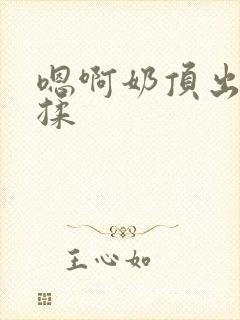 嗯啊奶頂出
揉
王心如